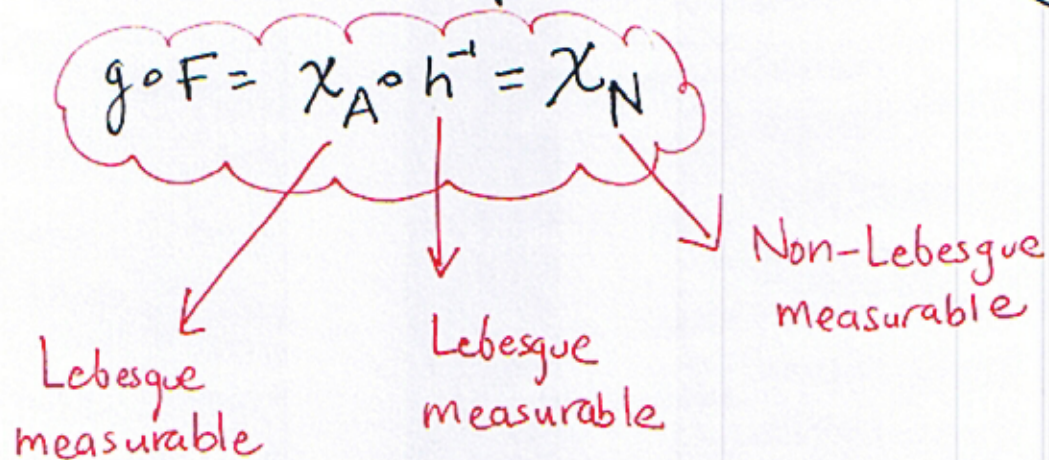 g∘F = χ_A ∘ h⁻¹ = χ_N
Non-Lebesgue
measurable
Lebesgue
measurable
Lebesgue
measurable